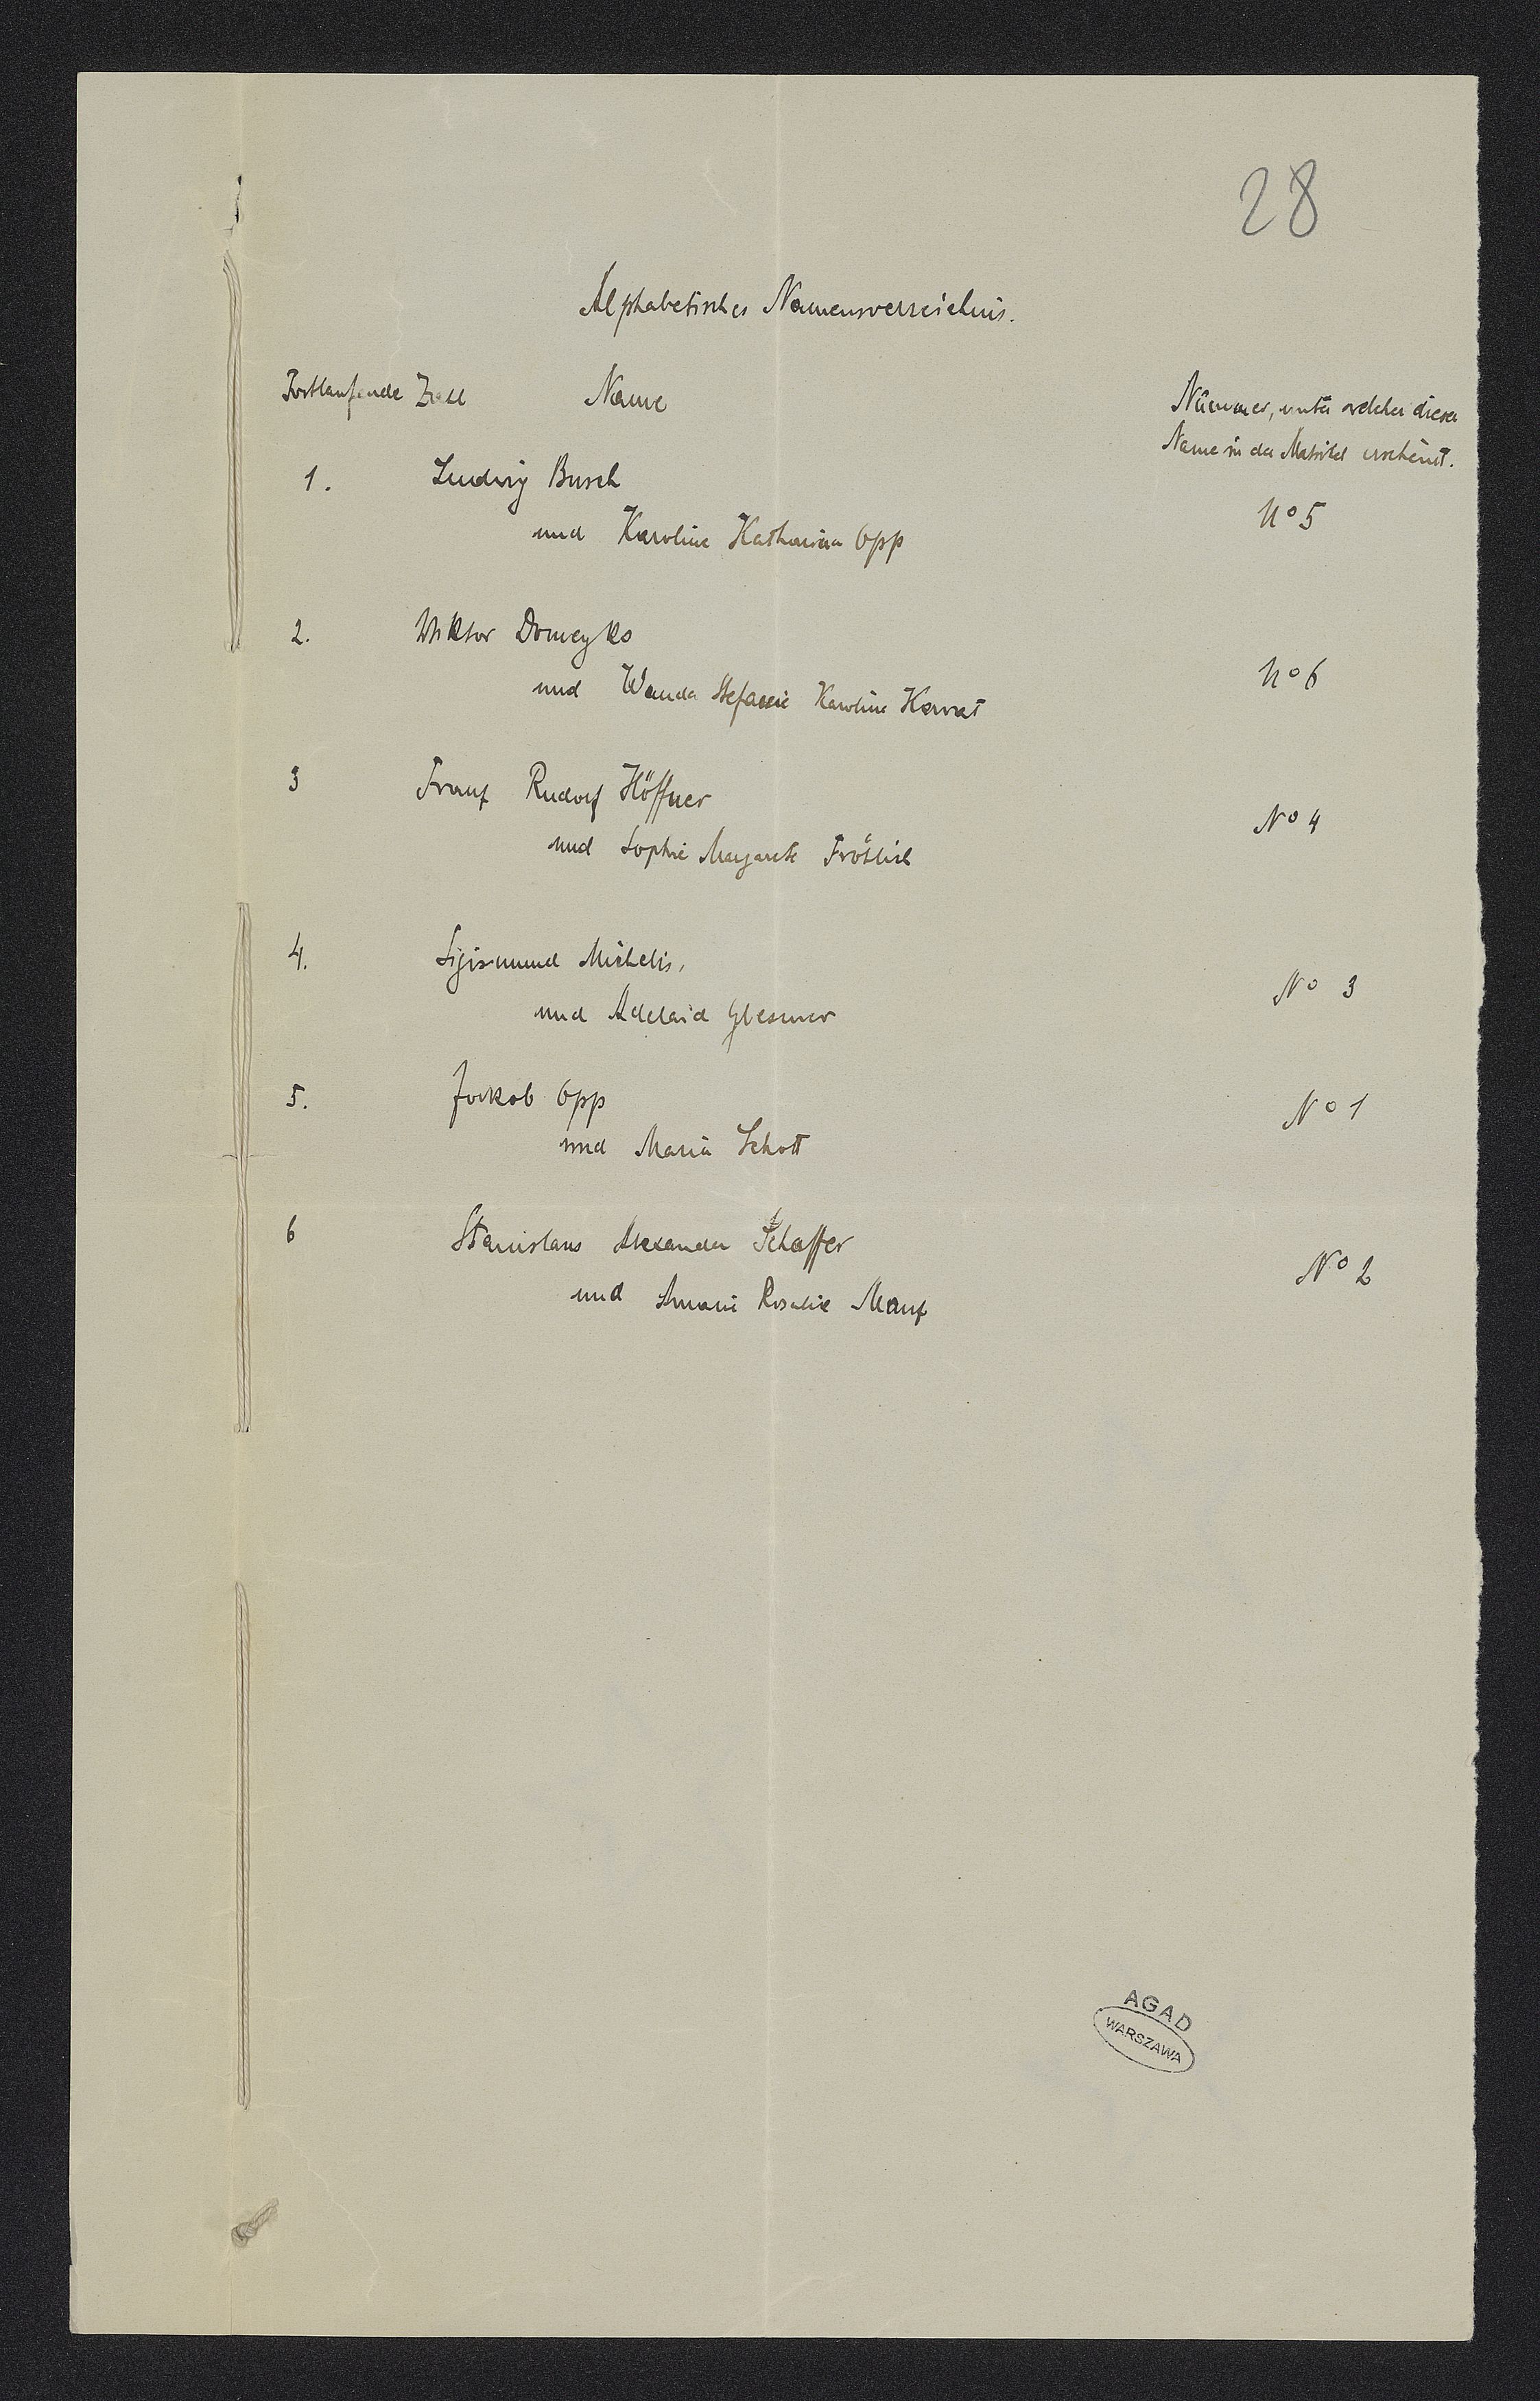 28
Alphabetisches Namensverzeichnis.
Fortlaufende Zahl Name Nummer, unter welcher dieser
Name in der Matrikel erscheint.
1. Ludwig Busch
und Karoline Katharina Opp No 5
2. Wiktor Domeyko
und Wanda Stefanie Karoline No 6
3 Franz Rudolf Höffner
und Sophie Margarete Fröhlich No 4
4. Sigismund Michelis,
und Adelaid No 3
5. Jakob Opp No 1
und Maria Schott
6 Stanislaus Alexander Schaffer
und Amalie Rosalie Manz No 2
AGAD
WARSZAWA